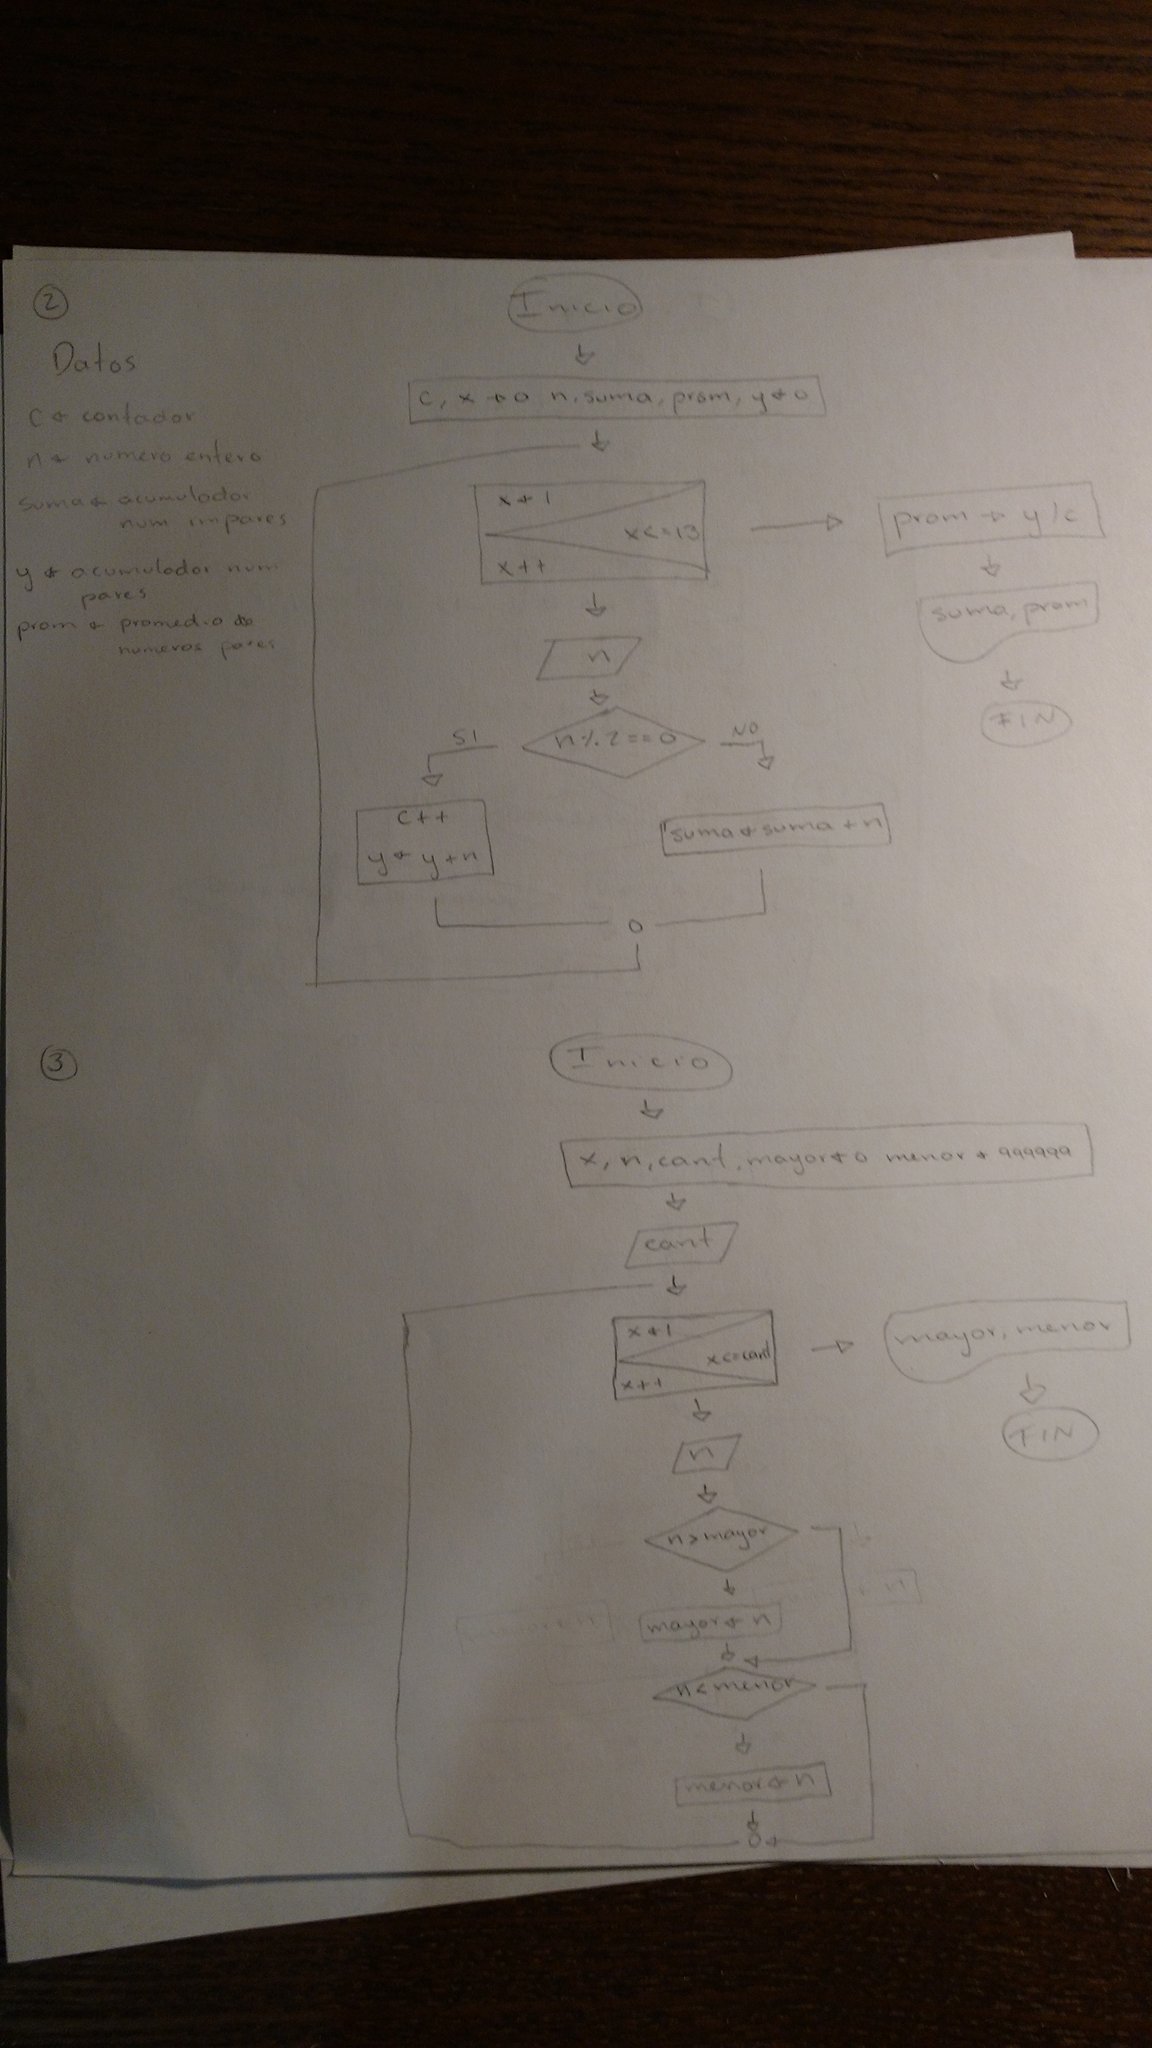 2
Inicio
Datos
c, x → 0 n, suma, prom, y ← 0
c ← contador
n ← numero entero
suma ← acumulador
num impares
y ← acumulador num
pares
prom ← promedio de
numeros pares
x ← 1
x <= 13
x++
prom → y/c
suma, prom
FIN
n
n % 2 == 0
SI
NO
c++
y ← y + n
suma ← suma + n
3
Inicio
x, n, cant, mayor ← 0 menor ← 999999
cant
x ← 1
x <= cant
x++
mayor, menor
FIN
n
n > mayor
mayor ← n
n < menor
menor ← n